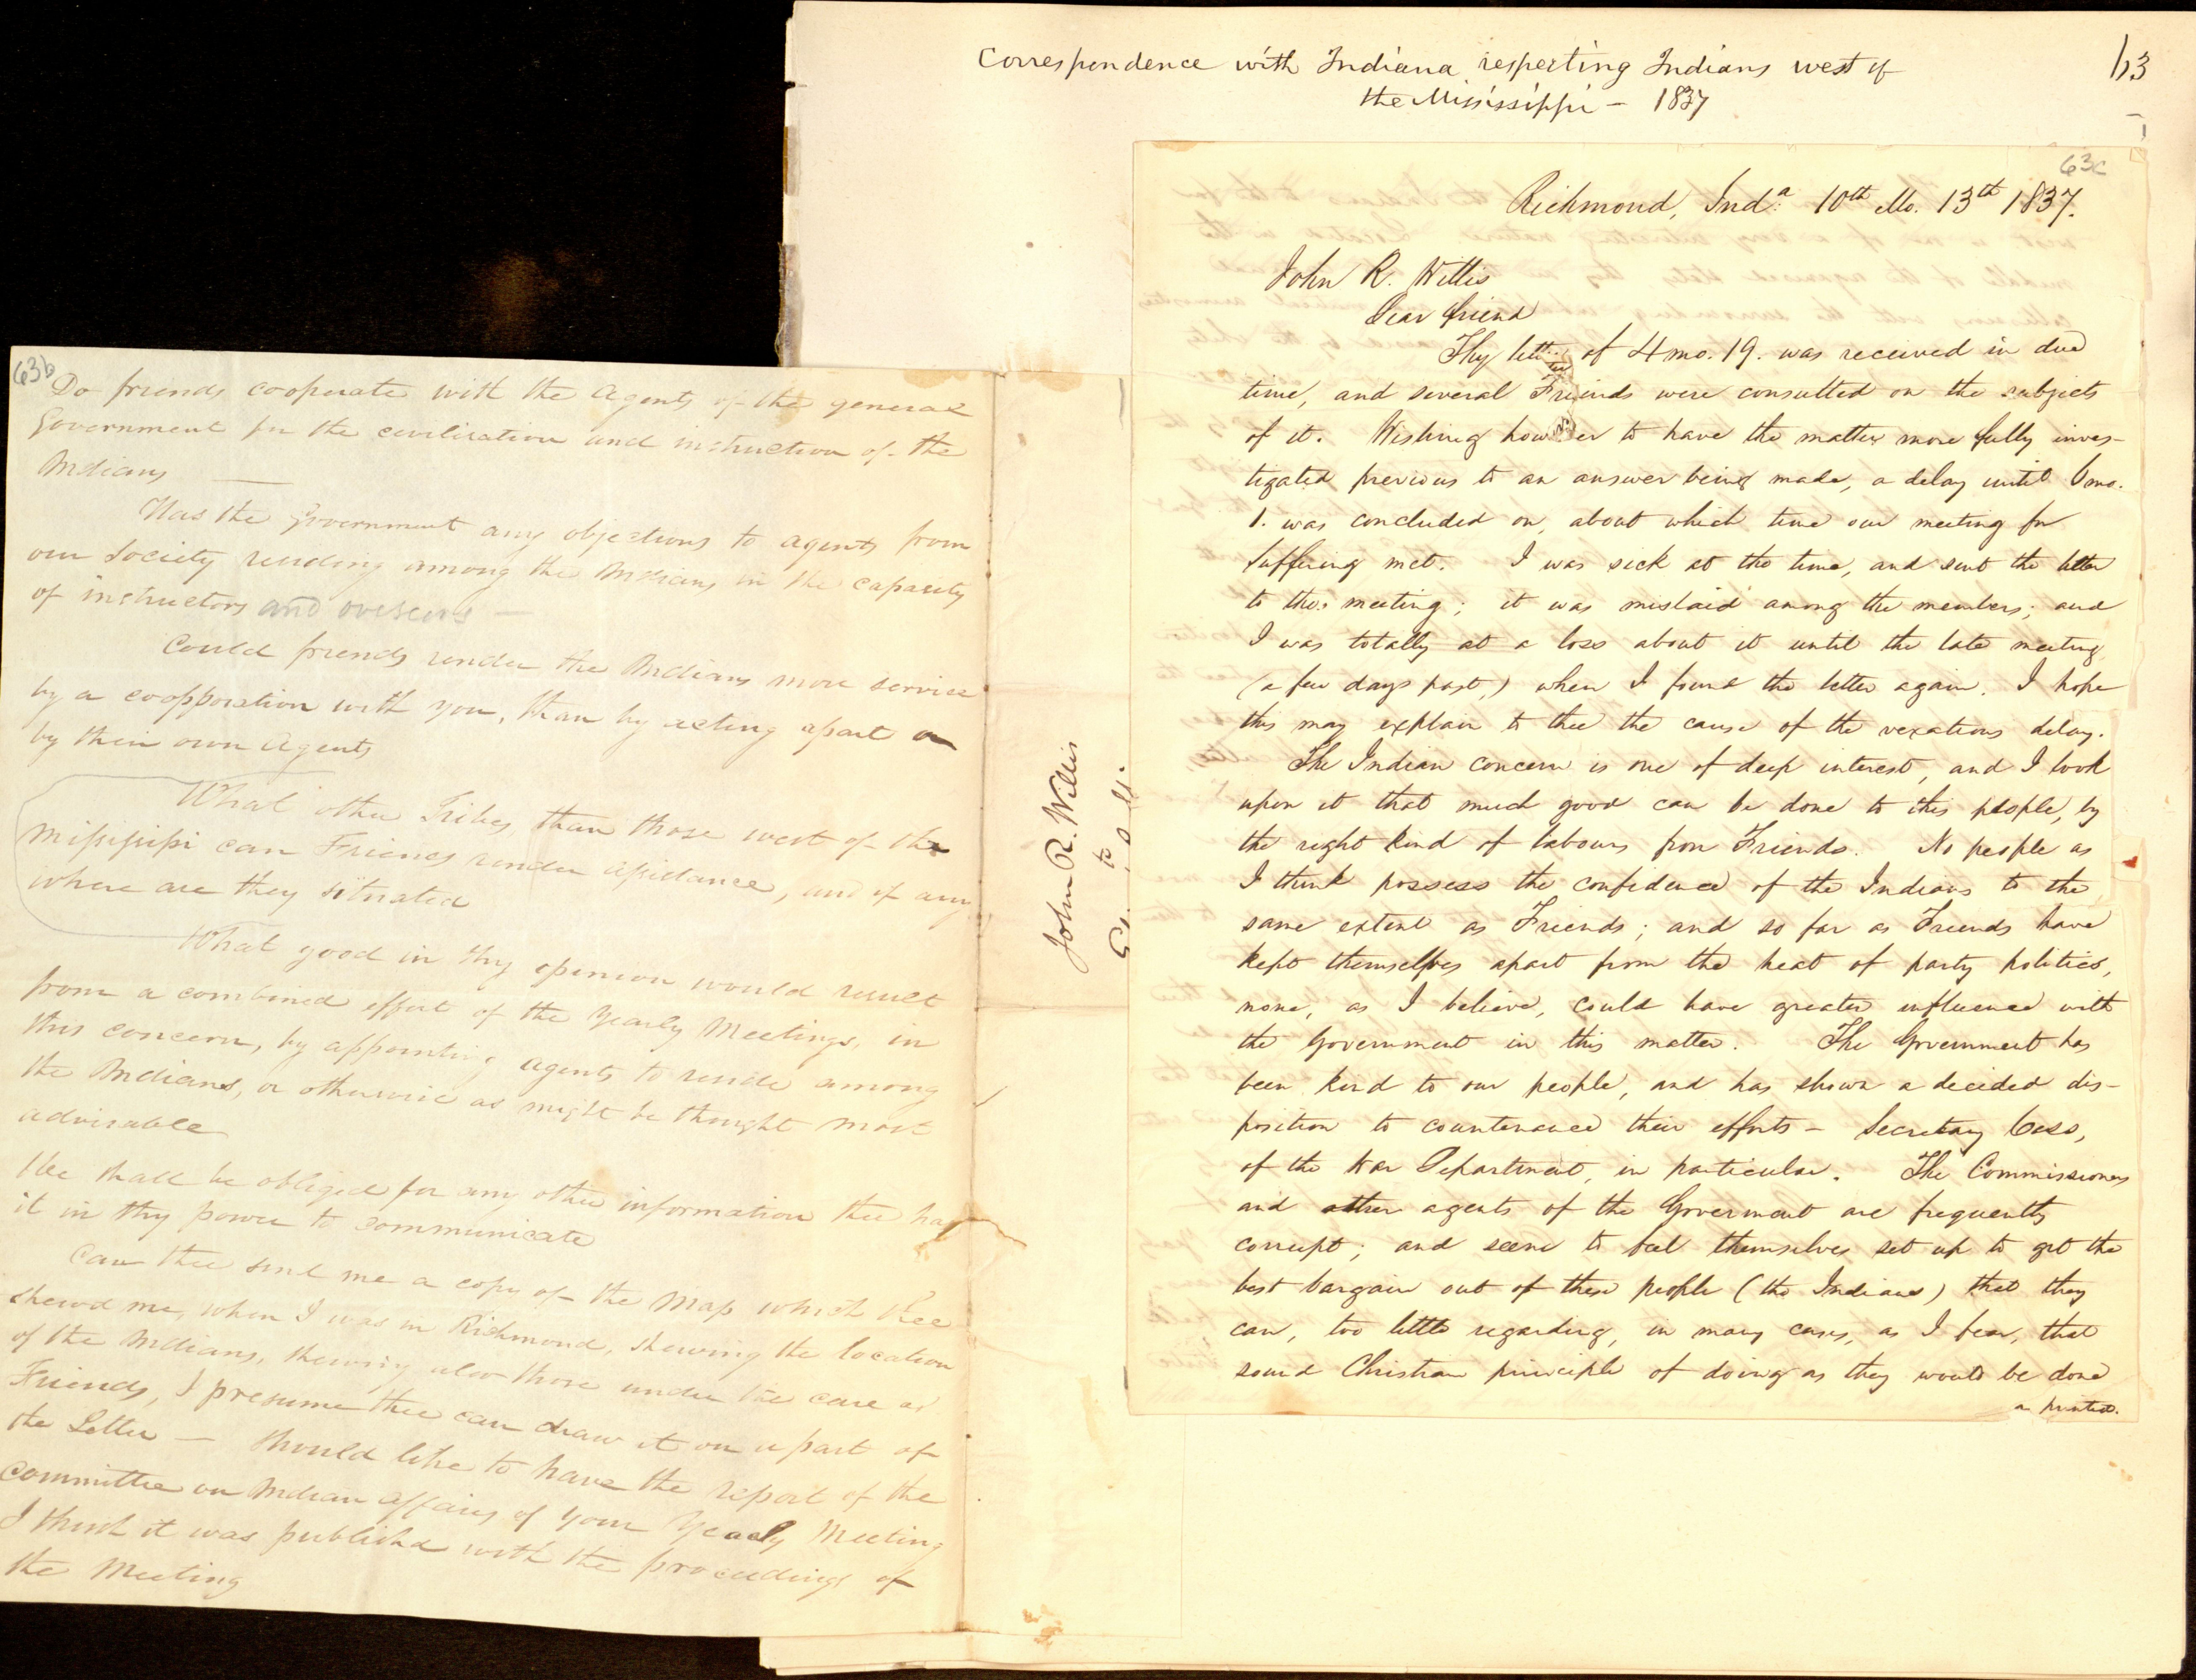 Correspondence with Indiana respecting Indians west of
the Mississippi - 1837
63
63b
Do friends cooperate with the Agents of the general
Government for the civilisation and instruction of the
Indians
Has the Government any objections to agents from
our Society residing among the Indians in the capacity
of instructors and overseers —
Could friends render the Indians more service
by a cooperation with you, than by acting apart or
by their own Agents
What other Tribes than those west of the
Missisipi can Friends render assistance, and if any
where are they situated
What good in thy opinion would result
from a combined effort of the Yearly Meetings, in
this concern, by appointing agents to reside among
the Indians, or otherwise as might be thought most
advisable
We shall be obliged for any other information thee has
it in thy power to communicate
Can thee send me a copy of the map which thee
shewd me, when I was in Richmond, shewing the location
of the Indians, shewing also those under the care of
Friends, I presume thee can draw it on a part of
the Letter — Should like to have the report of the
Committee on Indian affairs of your Yearly Meeting
I think it was publishd with the proceedings of
the Meeting
John R. Willis
to
63c
Richmond, Inda. 10th Mo. 13th 1837.
John R. Willis
Dear friend
Thy letter of 4 mo. 19. was received in due
time, and several Friends were consulted on the subjects
of it. Wishing however to have the matter more fully inves-
tigated previous to an answer being made, a delay until 6 mo.
1. was concluded on, about which time our meeting for
Suffering met. I was sick at the time, and sent the letter
to the meeting; it was mislaid among the members; and
I was totally at a loss about it until the late meeting
(a few days past,) when I found the letter again. I hope
this may explain to thee the cause of the vexatious delay.
The Indian concern is one of deep interest, and I look
upon it that much good can be done to this people, by
the right kind of labours from Friends. No people as
I think possess the confidence of the Indians to the
same extent as Friends; and so far as Friends have
kept themselves apart from the heat of party politics,
none, as I believe, could have greater influence with
the Government in this matter. The Government has
been kind to our people, and has shown a decided dis-
position to countenance their efforts — Secretary Cass,
of the War Department, in particular. The Commissioners
and other agents of the Government are frequently
corrupt; and seem to feel themselves set up to get the
best bargain out of these people (the Indians) that they
can, too little regarding, in many cases, as I fear, that
sound Christian principle of doing as they would be done